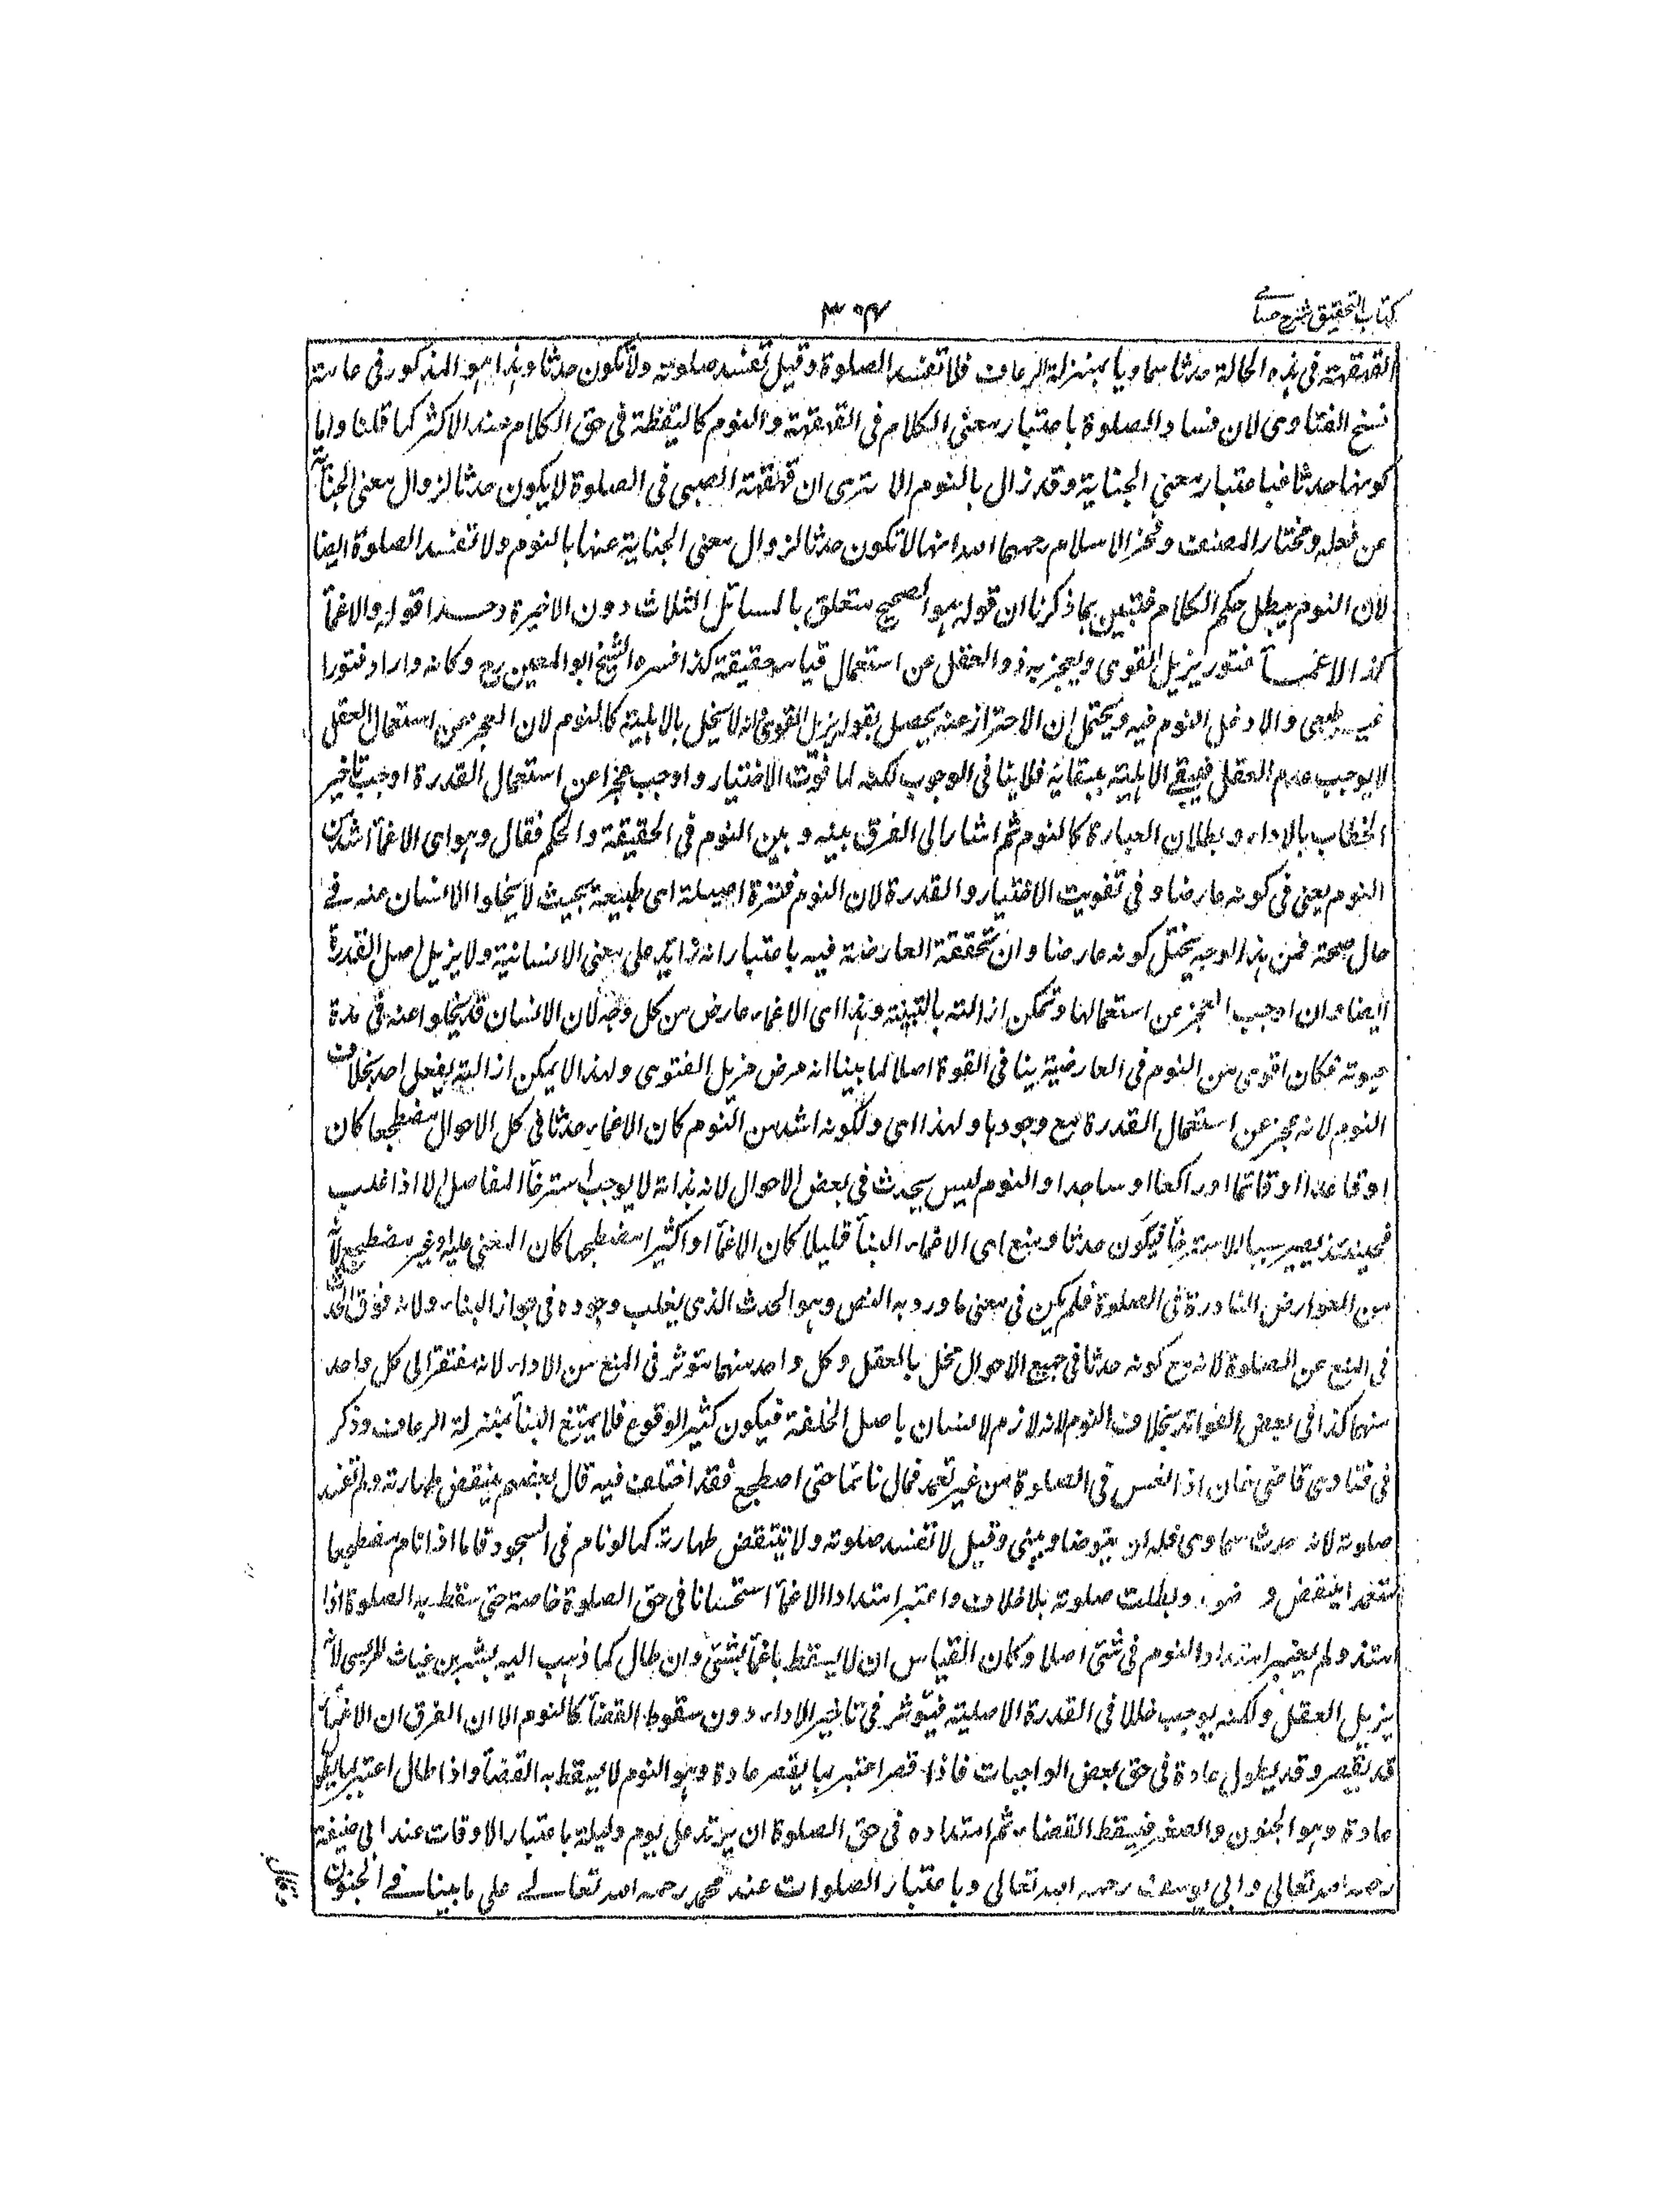 كتاب التحقيق شرح حسامى
٣٠٤
القهقهة فى هذه الحالة حدثا سماويا بمنزلة الرعاف فلا تفسد الصلوة وقيل تفسد صلوته ولا تكون حدثا وهذا هو المذكور فى عامة
نسخ الفتاوى لان فساد الصلوة باعتبار معنى الكلام فى القهقهة والنوم كاليقظة فى حق الكلام عند الاكثر كما قلنا واما
كونها حدثا فباعتبار معنى الجناية وقد زال بالنوم الا ترى ان قهقهة الصبى فى الصلوة لا يكون حدثا لزوال معنى الجناية
عن فعله ومختار المصنف وفخر الاسلام رحمهما الله انها لا تكون حدثا لزوال معنى الجناية عنها بالنوم ولا تفسد الصلوة ايضا
لان النوم يبطل حكم الكلام فتبين بما ذكرنا ان قوله هو الصحيح متعلق بالمسائل الثلاث دون الاخيرة وحدها قوله والاغمآ
الاغمآ فتور يزيل القوى ويعجز به ذو العقل عن استعماله قيامه حقيقة كذا فسره الشيخ ابو المعين رح وكانه اراد فتورا
غير طبعى والا دخل النوم فيه ويحتمل ان الاحتراز عنه يحصل بقوله يزيل القوى فانه لا يخل بالاهلية كالنوم لان العجز عن استعمال العقل
لا يوجب عدم العقل فيبقى الاهلية ببقائه فلا ينافى الوجوب لكنه لما فوّت الاختيار واوجب عجزا عن استعمال القدرة اوجب تاخير
الخطاب بالاداء وبطلان العبارة كالنوم ثم اشار الى الفرق بينه وبين النوم فى الحقيقة والحكم فقال وهو اى الاغمآ اشد من
النوم يعنى فى كونه عارضا وفى تفويت الاختيار والقدرة لان النوم فترة اصيلة اى طبيعة بحيث لا يخلوا الانسان عنه فى
حال صحة فمن هذا الوجه يختل كونه عارضا وان تحققة العارضة فيه باعتبار انه زائد على معنى الانسانية ولا يزيل اصل القدرة
ايضا وان اوجب العجز عن استعمالها وتمكن ازالته بالتنبيه وهذا اى الاغماء عارض من كل وجه لان الانسان قد يخلوا عنه فى مدة
حيوته فكان اقوى من النوم فى العارضية ينافى القوة اصلا لما بينا انه مرض مزيل القوى ولهذا لا يمكن ازالته بفعل احد بخلاف
النوم لانه عجز عن استعمال القدرة مع وجودها ولهذا اى ولكونه اشد من النوم كان الاغماء حدثا فى كل الاحوال مضطجعا كان
او قاعدا او قائما او راكعا او ساجدا والنوم ليس بحدث فى بعض الاحوال لانه بذاته لا يوجب استرخآ المفاصل الا اذا غلب
فحينئذ يصير سببا للاسترخآ فيكون حدثا ومنع اى الاغماء البنآ قليلا كان الاغمآ او اكثيرا مضطجعا كان المغمى عليه او غير مضطجع لانه
من العوارض النادرة فى الصلوة فلم يكن فى معنى ما ورد به النص وهو الحدث الذى يغلب وجوده فى جواز البناء ولانه فوق الحدث
فى المنع عن الصلوة لانه مع كونه حدثا فى جميع الاحوال مخل بالعقل وكل واحد منهما مؤثر فى المنع من الاداء لانه مفتقر الى كل واحد
منهما كذا فى بعض الفوائد بخلاف النوم لانه لازم لانسان باصل الخلقة فيكون كثير الوقوع فلا يمتنع البنآ بمنزلة الرعاف وذكر
فى فتاوى قاضى خان اذا نعس فى الصلوة من غير تعمد فمال نائما حتى اضطجع فقد اختلف فيه قال بعضهم ينتقض طهارته ولم تفسد
صلوته لانه حدث سماوى فله ان يتوضا ويبنى وقيل لا تفسد صلوته ولا تنتقض طهارته كما لو نام فى السجود فاما اذا نام مضطجعا
متعمدا ينتقض وضوء وبطلت صلوته بلا خلاف واعتبر امتداد الاغمآ استحسانا فى حق الصلوة خاصة حتى سقط به الصلوة اذا
امتد ولم يعتبر امتداد النوم فى شئى اصلا وكان القياس ان لا يسقط باغمآ شئى وان طال كما ذهب اليه بشر بن غياث المريسى لانه
يزيل العقل ولكنه يوجب خللا فى القدرة الاصلية فيؤثر فى تاخير الاداء دون سقوط القضآ كالنوم الا ان الفرق ان الاغمآ
قد يقصر وقد يطول عادة فى حق بعض الواجبات فاذا قصر اعتبر بما يقصر عادة وهو النوم لا يسقط به القضآ واذا طال اعتبر بما يطول
عادة وهو الجنون والصغر فيسقط القضاء ثم امتداده فى حق الصلوة ان يزيد على يوم وليلة باعتبار الاوقات عند ابى حنيفة
رحمه الله تعالى وابى يوسف رحمه الله تعالى وباعتبار الصلوات عند محمد رحمه الله تعالى على ما بينا فى الجنون